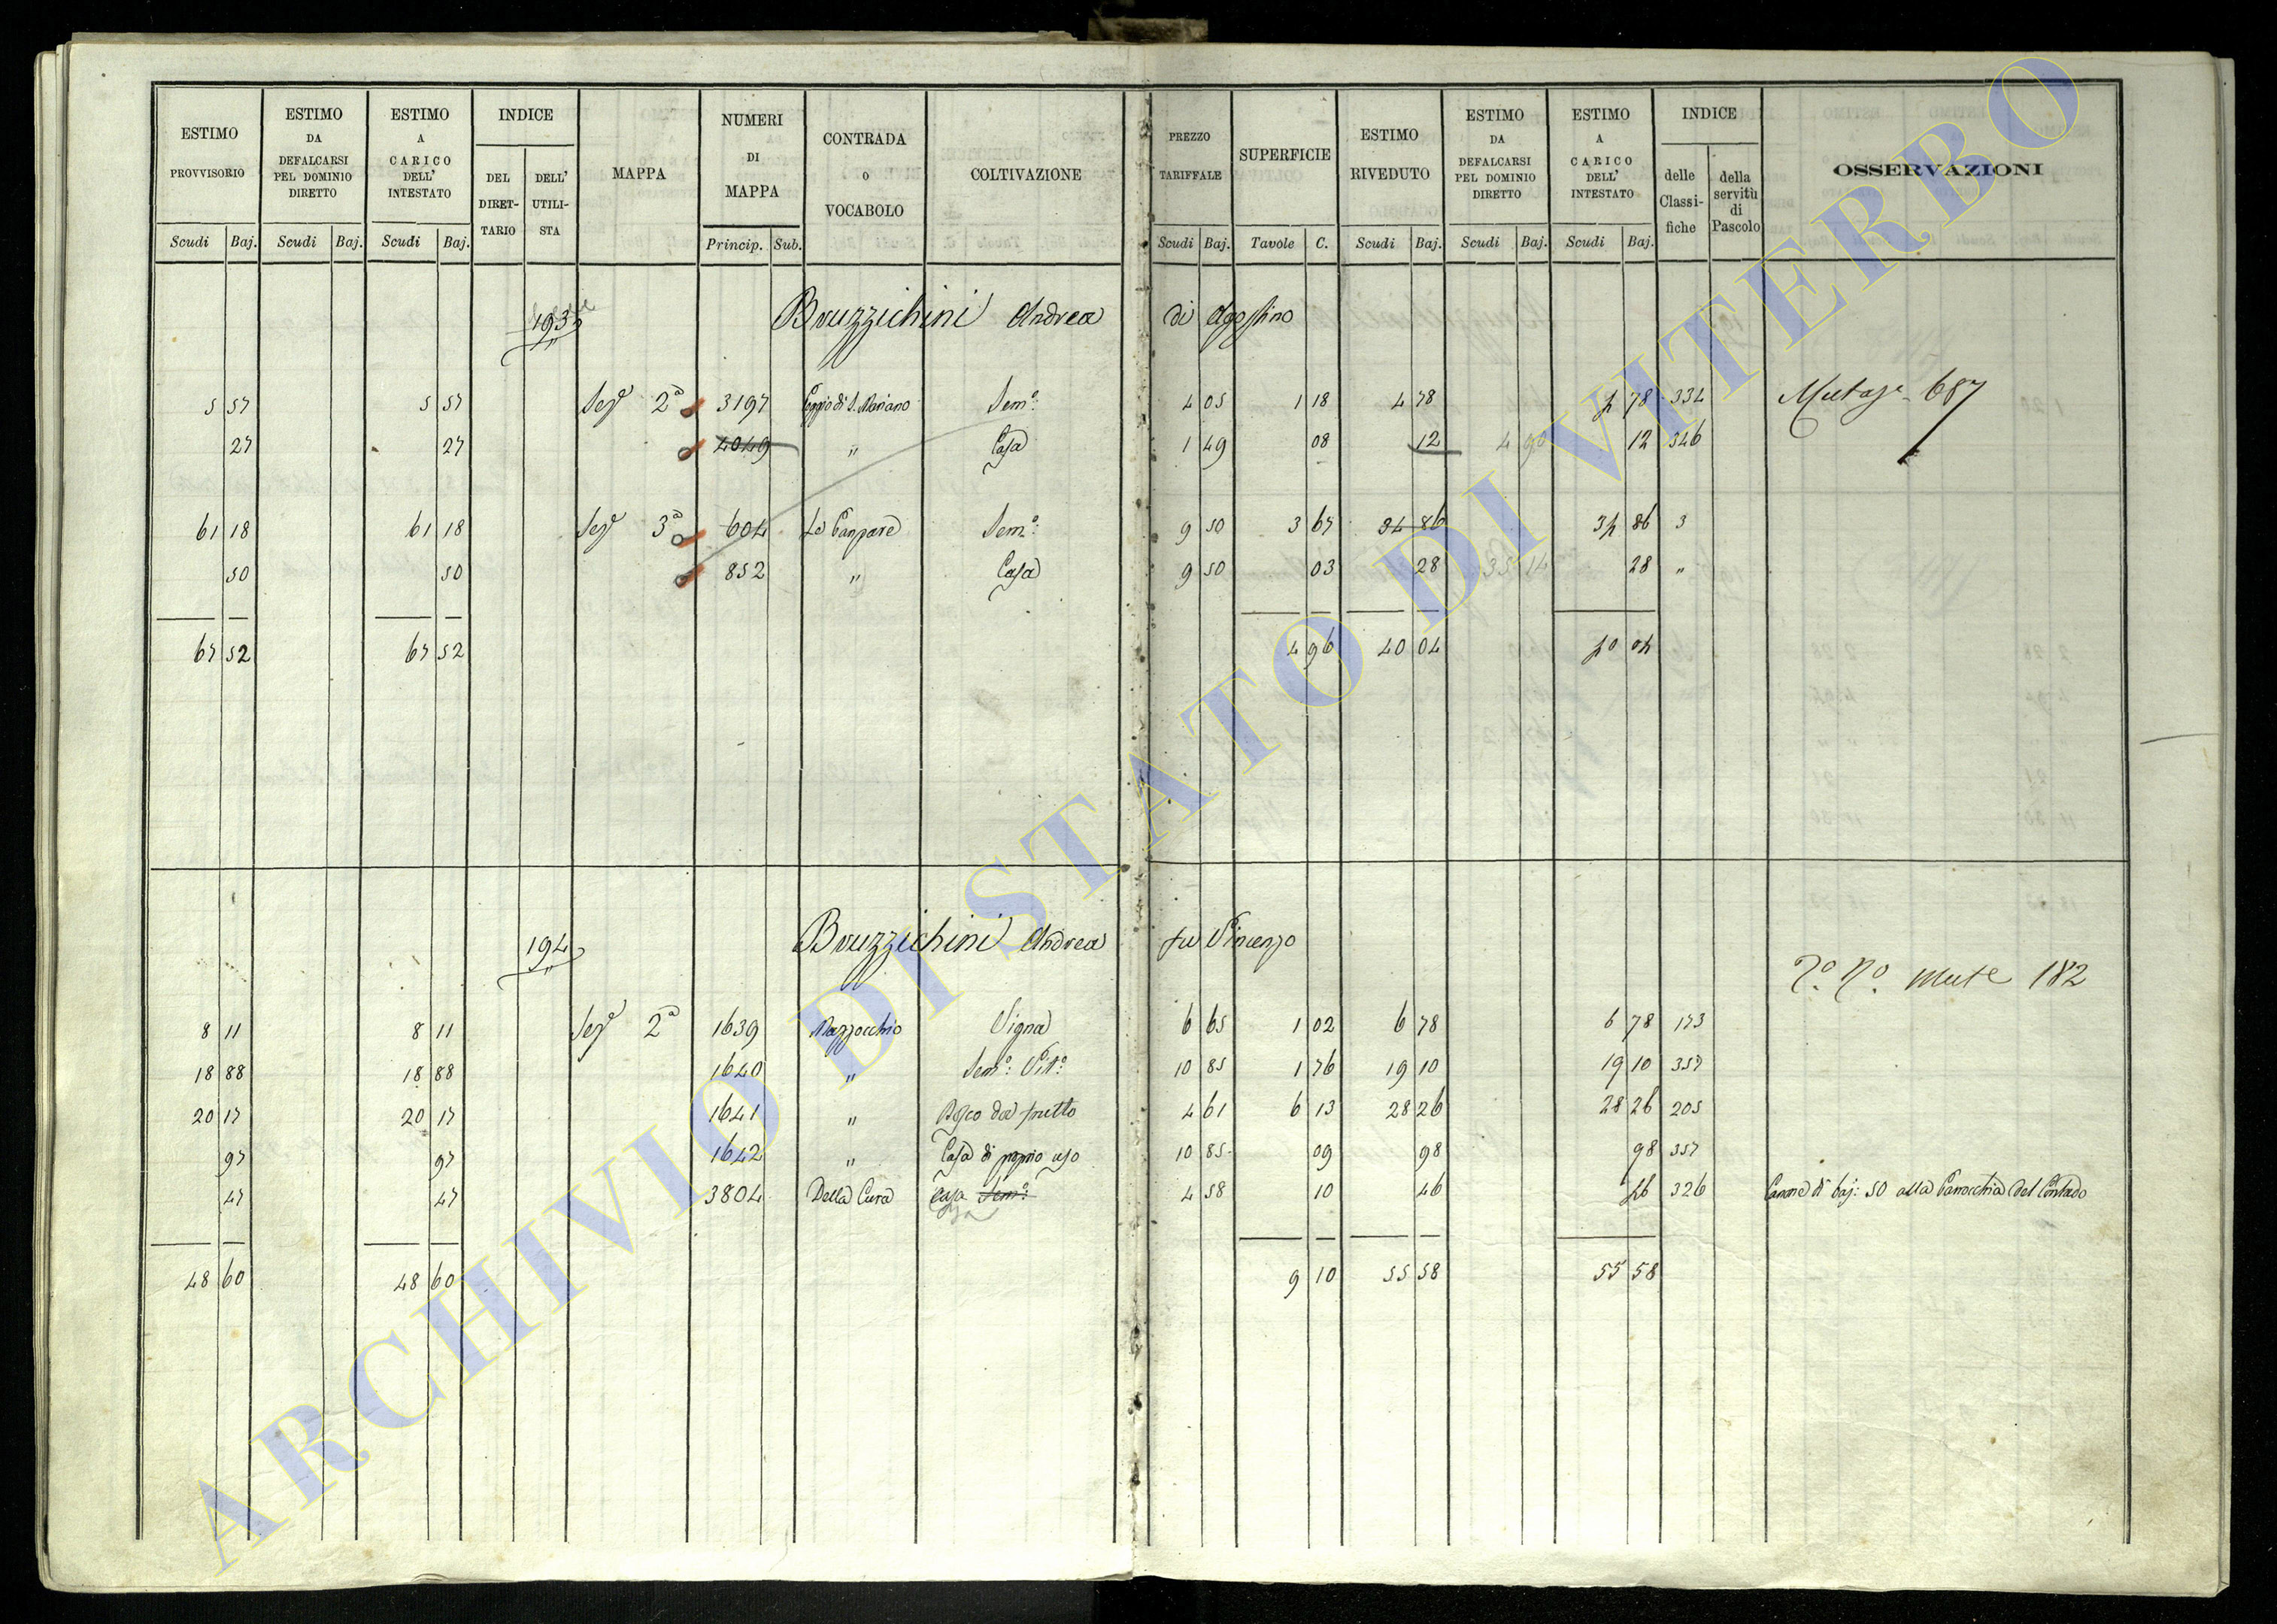 ESTIMO PROVVISORIO | ESTIMO DA DEFALCARSI PEL DOMINIO DIRETTO | ESTIMO A CARICO DELL' INTESTATO | INDICE DEL DIRETTARIO | DELL' UTILISTA | MAPPA | NUMERI DI MAPPA | CONTRADA O VOCABOLO | COLTIVAZIONE | PREZZO TARIFFALE | SUPERFICIE | ESTIMO RIVEDUTO | ESTIMO DA DEFALCARSI PEL DOMINIO DIRETTO | ESTIMO A CARICO DELL' INTESTATO | INDICE delle Classifiche | della servitù di Pascolo | OSSERVAZIONI
Scudi | Baj. | Scudi | Baj. | Scudi | Baj. | Princip. | Sub. | Scudi | Baj. | Tavole | C. | Scudi | Baj. | Scudi | Baj. | Scudi | Baj.
193 Bruzzichini Andrea di Agostino
5 57 | 5 57 | Sezᵉ 2ª | 3197 | Poggio di S. Mariano | Semº: | 4 05 | 1 18 | 4 78 | 4 78 | 334 | 687
27 | 27 | 4049 | " | Casa | 1 49 | 08 | 12 | 12 | 346
61 18 | 61 18 | Sezᵉ 3ª | 604 | Semº: | 9 50 | 3 67 | 34 86 | 34 86 | 3
50 | 50 | 852 | " | Casa | 9 50 | 03 | 28 | 28 | "
67 52 | 67 52 | 4 96 | 40 04 | 40 04
194 Bruzzichini Andrea fu Vincenzo
Mute 182
8 11 | 8 11 | Sezᵉ 2ª | 1639 | Mazzocchio | Vigna | 6 65 | 1 02 | 6 78 | 6 78 | 173
18 88 | 18 88 | 1640 | " | Semº: Vitº: | 10 85 | 1 76 | 19 10 | 19 10 | 357
20 17 | 20 17 | 1641 | " | Bosco da frutto | 4 61 | 6 13 | 28 26 | 28 26 | 205
97 | 97 | 1642 | " | Casa di proprio uso | 10 85 | 09 | 98 | 98 | 357
47 | 47 | 3804 | Della Cura | Casa Semº: | 4 58 | 10 | 46 | 46 | 326 | Canone di baj: 50 alla Parrocchia del Contado
48 60 | 48 60 | 9 10 | 55 58 | 55 58
ARCHIVIO DI STATO DI VITERBO